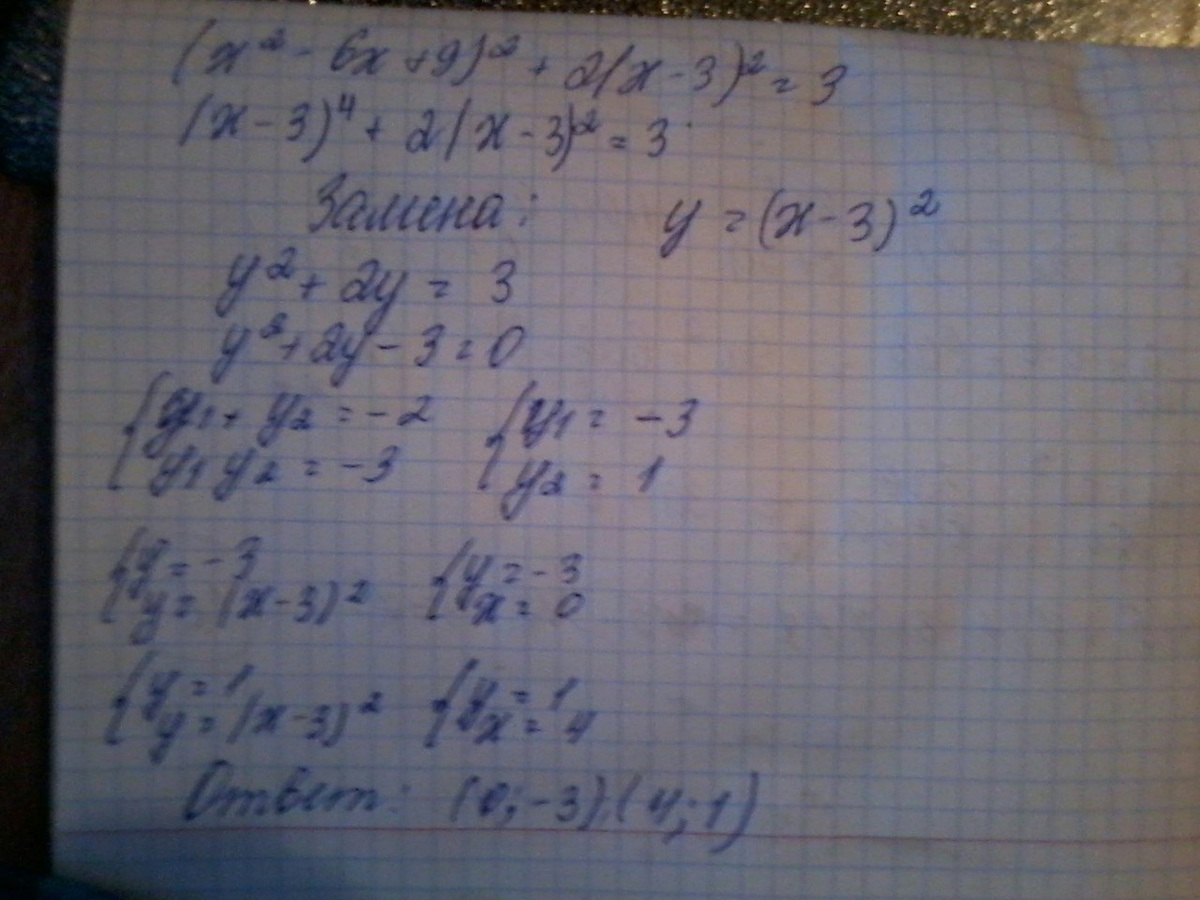 (x² - 6x + 9)² + 2(x - 3)² = 3
(x - 3)⁴ + 2(x - 3)² = 3
Замена: y = (x - 3)²
y² + 2y = 3
y² + 2y - 3 = 0
{y₁ + y₂ = -2 {y₁ = -3
{y₁ y₂ = -3 {y₂ = 1
{y = -3 {y = -3
{y = (x - 3)² {x = 0
{y = 1 {y = 1
{y = (x - 3)² {x = 4
Ответ: (0; -3).(4; 1)